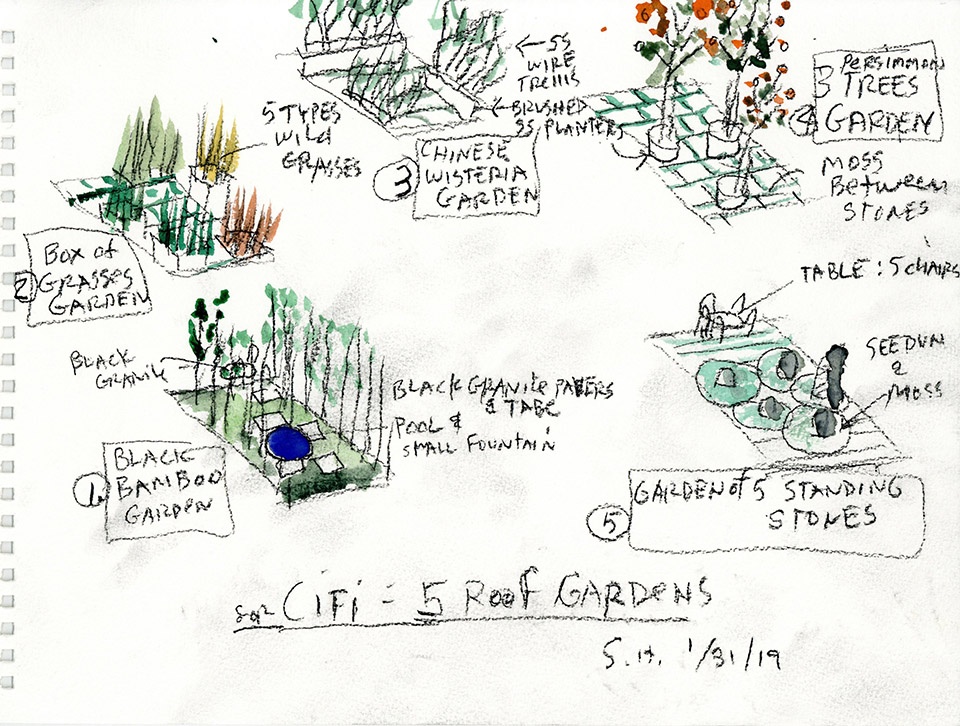 ← SS
WIRE
TRELLIS
← BRUSHED
SS PLANTERS
5 TYPES
WILD
GRASSES
3
CHINESE
WISTERIA
GARDEN
4
PERSIMMON
3 TREES
GARDEN
MOSS
BETWEEN
STONES
2
BOX of
GRASSES
GARDEN
BLACK
GRANITE
BLACK GRANITE PAVERS
& TABLE
POOL &
SMALL FOUNTAIN
1.
BLACK
BAMBOO
GARDEN
TABLE : 5 CHAIRS
SEEDUM
&
MOSS
5
GARDEN of 5 STANDING
STONES
CiFi = 5 Roof GARDENS
S.H. 1/31/19